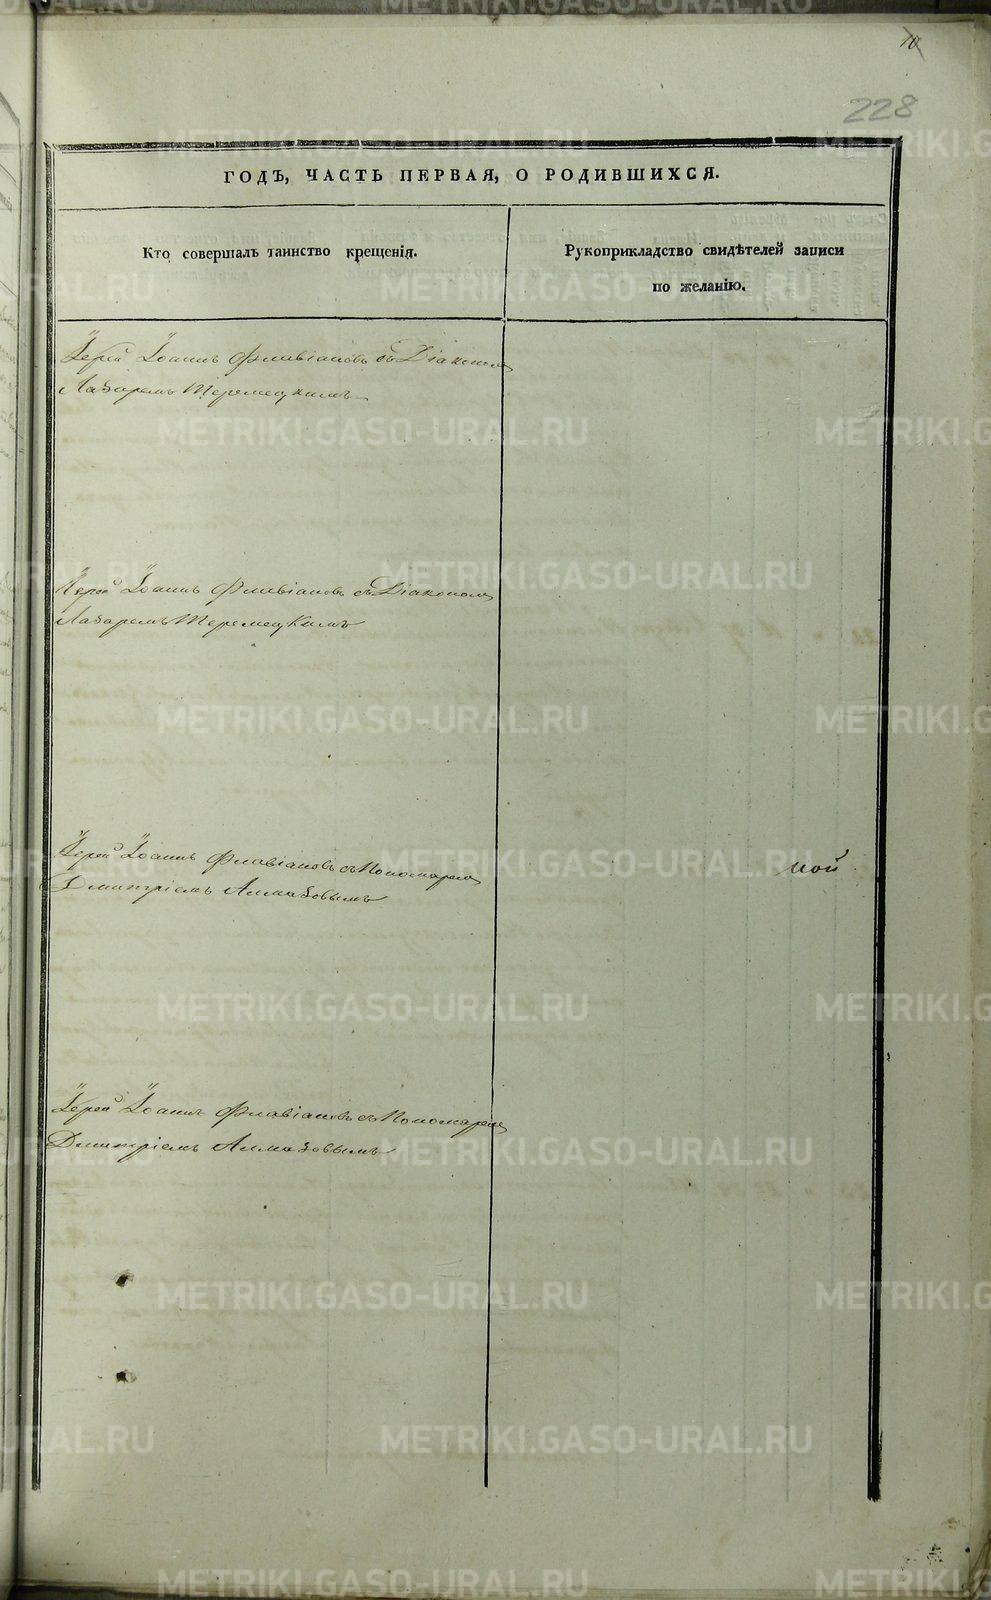 10
228
ГОДЪ, ЧАСТЬ ПЕРВАЯ, О РОДИВШИХСЯ.
Кто совершалъ таинство крещенія.
Рукоприкладство свидѣтелей записи
по желанію.
Іерей Іоаннъ Флавіановъ съ Діакономъ
Лазаремъ Теремецкимъ
Іерей Іоаннъ Флавіановъ съ Діакономъ
Лазаремъ Теремецкимъ
Іерей Іоаннъ Флавіановъ съ Пономаремъ
Дмитріемъ Алмазовымъ
мой
Іерей Іоаннъ Флавіановъ съ Пономаремъ
Дмитріемъ Алмазовымъ
METRIKI.GASO-URAL.RU